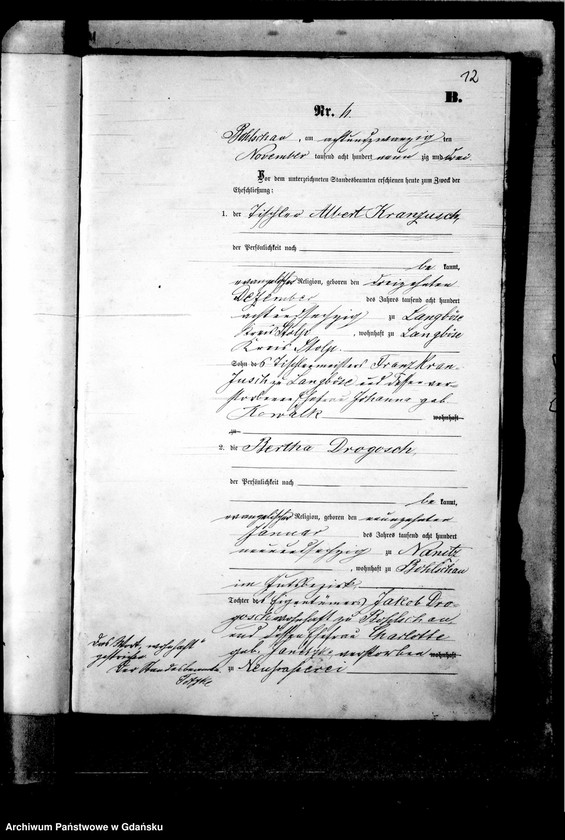 12
B.
Nr. 11.
Bohlschau, am achtundzwanzig ten
November tausend acht hundert neun zig und drei.
Vor dem unterzeichneten Standesbeamten erschienen heute zum Zweck der
Eheschließung:
1. der Tischler Albert Kranzusch
der Persönlichkeit nach
be kannt,
evangelischer Religion, geboren den dreizehnten
Dezember des Jahres tausend acht hundert
acht und sechzig zu Langböse
Kreis Stolp, wohnhaft zu Langböse
Kreis Stolp.
Sohn des Tischlermeisters Franz Kran-
zusch zu Langböse und dessen ver-
storbenen Ehefrau Johanna geb.
Kowalk wohnhaft
zu
2. die Bertha Drogosch,
der Persönlichkeit nach
be kannt,
evangelischer Religion, geboren den neunzehnten
Januar des Jahres tausend acht hundert
neunundsechzig zu Nanitz
, wohnhaft zu Bohlschau
im Gutsbezirk
Tochter des Eigentümers Jakob Dro-
gosch wohnhaft zu Bohlschau
und dessen Ehefrau Charlotte
geb. verstorben wohnhaft
zu
Das Wort "wohnhaft"
gestrichen
Der Standesbeamte
Archiwum Państwowe w Gdańsku